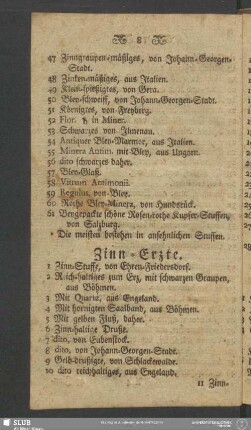 8
47 Zinngraupen-mäßiges, von Johann-Georgen-
Stadt.
48 Zinken-mäßiges, aus Italien.
49 Klein-spießigtes, von Gera.
50 Bley-schweiff, von Johann-Georgen-Stadt.
51 Körnigtes, von Freyberg.
52 Flor. in Miner.
53 Schwarzes von Ilmenau.
54 Antiquer Bley-Marmor, aus Italien.
55 Minera Antim. mit Bley, aus Ungarn.
56 dito schwarzes daher.
57 Bley-Glaß.
58 Vitrum Antimonii.
59 Regulus, von Bley.
60 Rothe Bley-Minera, von Hundsrück.
61 Vergepackte schöne Rosen-rothe Kupfer-Stuffen,
von Salzburg.
Die meisten bestehen in ansehnlichen Stuffen.
Zinn-Erzte.
1 Zinn-Stuffe, von Ehren-Friedersdorf.
2 Reichhaltiges zum Erz, mit schwarzen Graupen,
aus Böhmen.
3 Mit Quartz, aus Engeland.
4 Mit hornigten Saalband, aus Böhmen.
5 Mit gelben Fluß, daher.
6 Zinn-haltige Druße.
7 dito, von Eubenstock.
8 dito, von Johann-Georgen-Stadt.
9 Geld-drußigte, von Schlackewalde.
10 dito reichhaltiges, aus Engeland.
11 Zinn-
SLUB